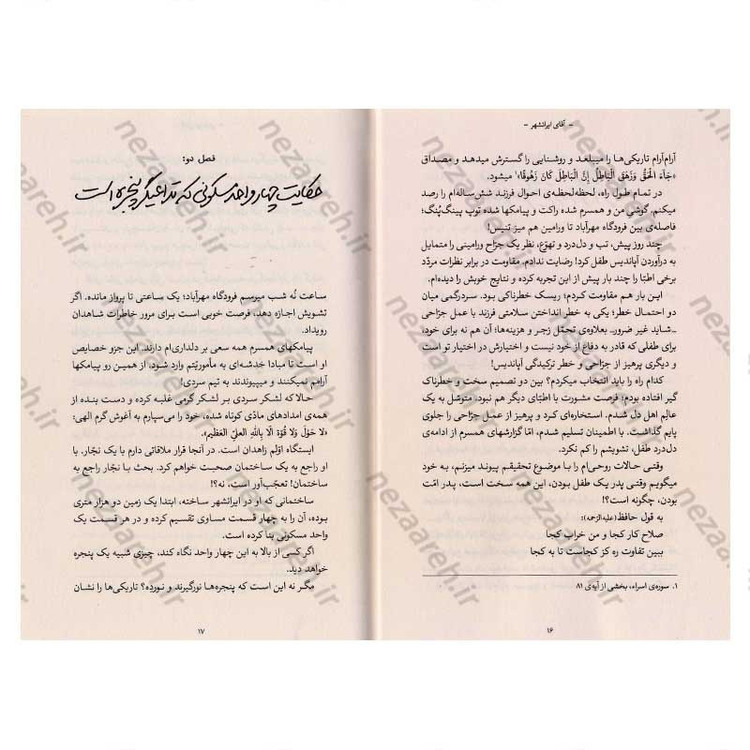 - آقای ایرانشهر -
آرام‌آرام تاریکی‌ها را میبلعد و روشنایی را گسترش میدهد و مصداق
«جَاءَ الْحَقُّ وَ زَهَقَ الْبَاطِلُ إِنَّ الْبَاطِلَ كَانَ زَهُوقًا»۱ میشود.
در تمام طول راه، لحظه‌لحظه‌ی احوال فرزند شش‌ساله‌ام را رصد
میکنم. گوشی من و همسرم شده راکت و پیامکها شده توپ پینگ‌پُنگ؛
فاصله‌ی بین فرودگاه مهرآباد تا ورامین هم میز تنیس!
چند روز پیش، تب و دل‌درد و تهوّع، نظر یک جرّاح ورامینی را متمایل
به درآوردن آپاندیس طفل کرد! رضایت ندادم. مقاومت در برابر نظرات مردّد
برخی اطبّا را چند بار پیش از این تجربه کرده و نتایج خوبش را دیده‌ام.
این بار هم مقاومت کردم؛ ریسک خطرناکی بود. سردرگمی میان
دو احتمال خطر؛ یکی به خطر انداختن سلامتی فرزند با عمل جرّاحی
ـ‌شاید غیر ضرور. بعلاوه‌ی تحمّل زجر و هزینه‌ها؛ آن هم نه برای خود،
برای طفلی که قادر به دفاع از خود نیست و اختیارش در اختیار تو است
و دیگری پرهیز از جرّاحی و خطر ترکیدگی آپاندیس!
کدام راه را باید انتخاب میکردم؟ بین دو تصمیم سخت و خطرناک
گیر افتاده بودم؛ فرصت مشورت با اطبّای دیگر هم نبود. متوسّل به یک
عالِم اهل دل شدم. استخاره‌ای کرد و پرهیز از عمل جرّاحی را جلوی
پایم گذاشت. با اطمینان تسلیم شدم، امّا گزارشهای همسرم از ادامه‌ی
دل‌درد طفل، تشویشم را کم نکرد.
وقتی حالات روحی‌ام را با موضوع تحقیقم پیوند میزنم، به خود
میگویم وقتی پدر یک طفل بودن، این همه سخت است، پدر امّت
بودن، چگونه است؟!
به قول حافظ(علیه‌الرّحمه):
صلاح کار کجا و من خراب کجا
ببین تفاوت ره کز کجاست تا به کجا
۱. سوره‌ی اسراء، بخشی از آیه‌ی ۸۱
۱۶
فصل دو:
حکایت چهار واحد مسکونی که تداعیگر پنجره است
ساعت نُه شب میرسم فرودگاه مهرآباد؛ یک ساعتی تا پرواز مانده. اگر
تشویش اجازه دهد، فرصت خوبی است برای مرور خاطرات شاهدان
رویداد.
پیامکهای همسرم همه سعی بر دلداری‌ام دارند. این جزو خصایص
او است تا مبادا خدشه‌ای به مأموریّتم وارد شود، از همین رو پیامکها
آرامم نمیکنند و میپیوندند به تیم سردی!
حالا که لشکر سردی بر لشکر گرمی غلبه کرده و دست بنده از
همه‌ی امدادهای مادّی کوتاه شده، خود را می‌سپارم به آغوش گرم الهی:
«لا حَوْلَ وَلا قُوَّةَ الّا بِاللهِ العلیِّ العَظیم».
ایستگاه اوّلم زاهدان است. در آنجا قرار ملاقاتی دارم با یک نجّار. با
او راجع به یک ساختمان صحبت خواهم کرد. بحث با نجّار راجع به
ساختمان! تعجّب‌آور است، نه؟!
ساختمانی که او در ایرانشهر ساخته، ابتدا یک زمین دو هزار متری
بوده، آن را به چهار قسمت مساوی تقسیم کرده و در هر قسمت یک
واحد مسکونی بنا کرده است.
اگر کسی از بالا به این چهار واحد نگاه کند، چیزی شبیه یک پنجره
خواهد دید.
مگر نه این است که پنجره‌ها نورگیرند و نورده؟ تاریکی‌ها را نشان
۱۷
nezaareh.ir
nezaareh.ir
nezaareh.ir
nezaareh.ir
nezaareh.ir
nezaareh.ir